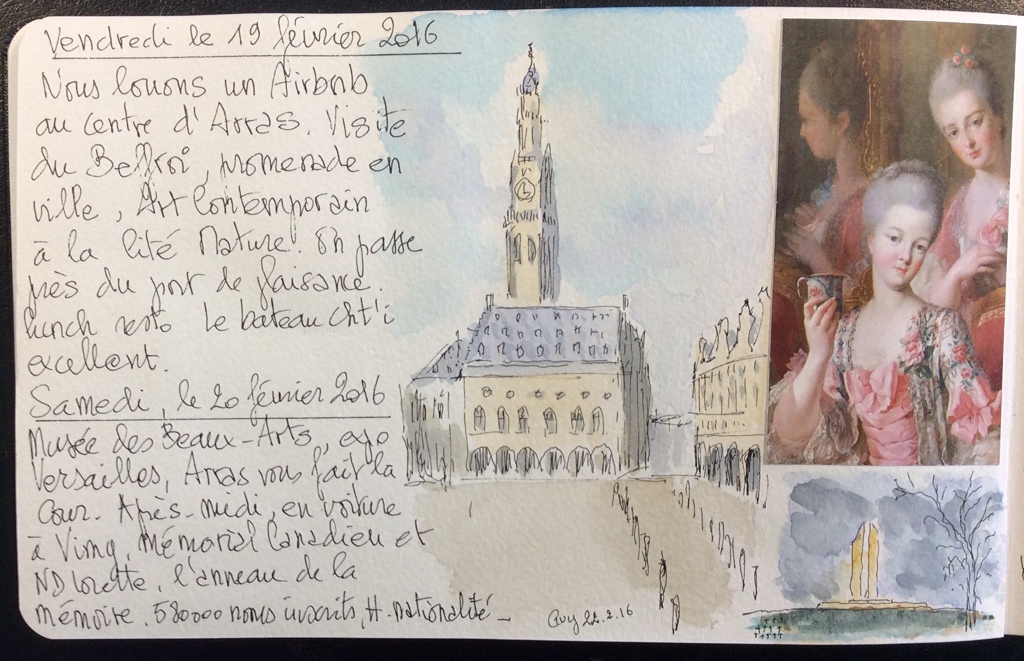 Vendredi le 19 février 2016
Nous louons un Airbnb
au centre d'Arras. Visite
du Beffroi, promenade en
ville, Art Contemporain
à la Cité Nature. On passe
près du port de plaisance.
Lunch resto Le bateau cht'i
excellent.
Samedi, le 20 février 2016
Musée des Beaux-Arts, expo
Versailles, Arras vous fait la
Cour. Après-midi, en voiture
à Vimy, Mémorial Canadien et
ND Lorette, l'anneau de la
mémoire. 580000 noms inscrits, #. nationalité_
Guy 22.2.16